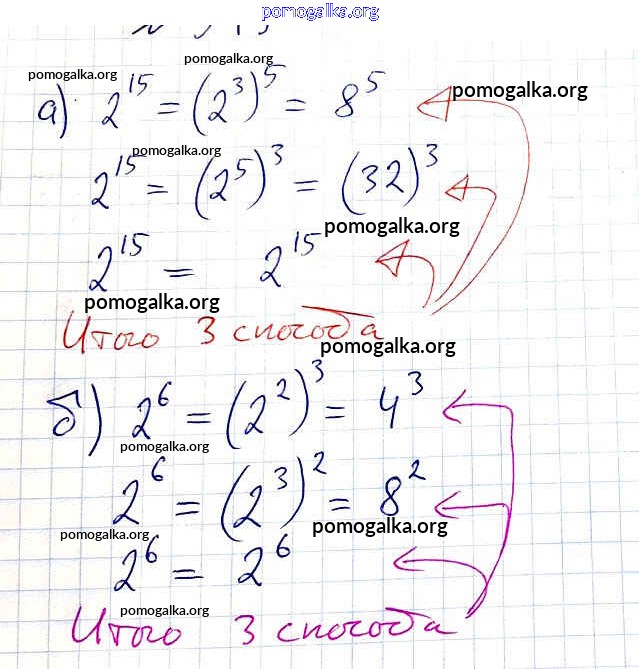 pomogalka.org
pomogalka.org
pomogalka.org
а) 2^15 = (2^3)^5 = 8^5
pomogalka.org
pomogalka.org
2^15 = (2^5)^3 = (32)^3
pomogalka.org
2^15 = 2^15
pomogalka.org
Итого 3 способа
pomogalka.org
б) 2^6 = (2^2)^3 = 4^3
pomogalka.org
2^6 = (2^3)^2 = 8^2
pomogalka.org
pomogalka.org
2^6 = 2^6
pomogalka.org
Итого 3 способа